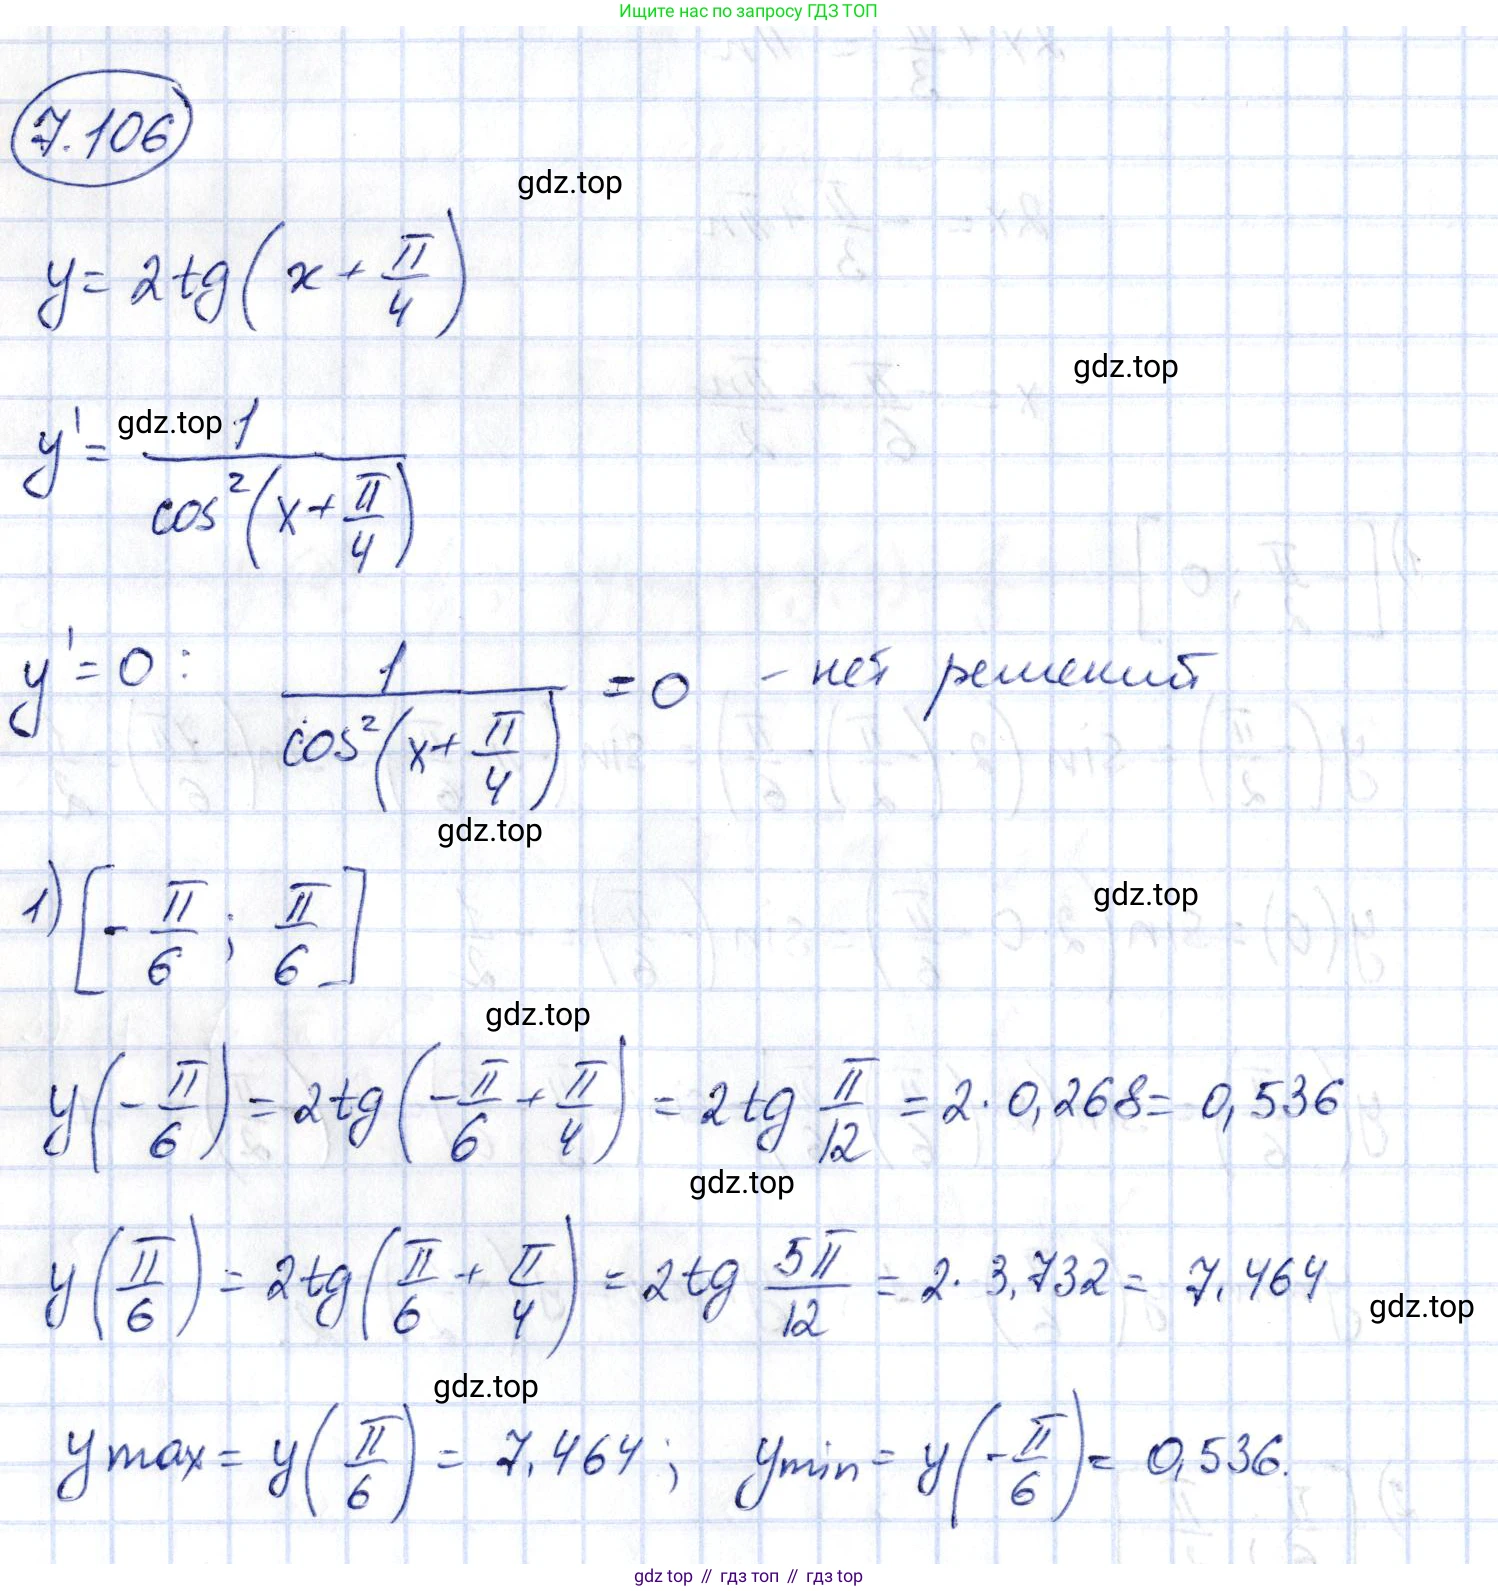 Ищите нас по запросу ГДЗ ТОП
7.106
gdz.top
y = 2tg(x + π/4)
gdz.top
gdz.top
y' = 1/cos²(x + π/4)
y' = 0 : 1/cos²(x + π/4) = 0 - нет решений
gdz.top
1) [-π/6 ; π/6]
gdz.top
gdz.top
y(-π/6) = 2tg(-π/6 + π/4) = 2tg π/12 = 2 · 0,268 = 0,536
gdz.top
y(π/6) = 2tg(π/6 + π/4) = 2tg 5π/12 = 2 · 3,732 = 7,464
gdz.top
gdz.top
y max = y(π/6) = 7,464 ; y min = y(-π/6) = 0,536.
gdz top // гдз топ // гдз top